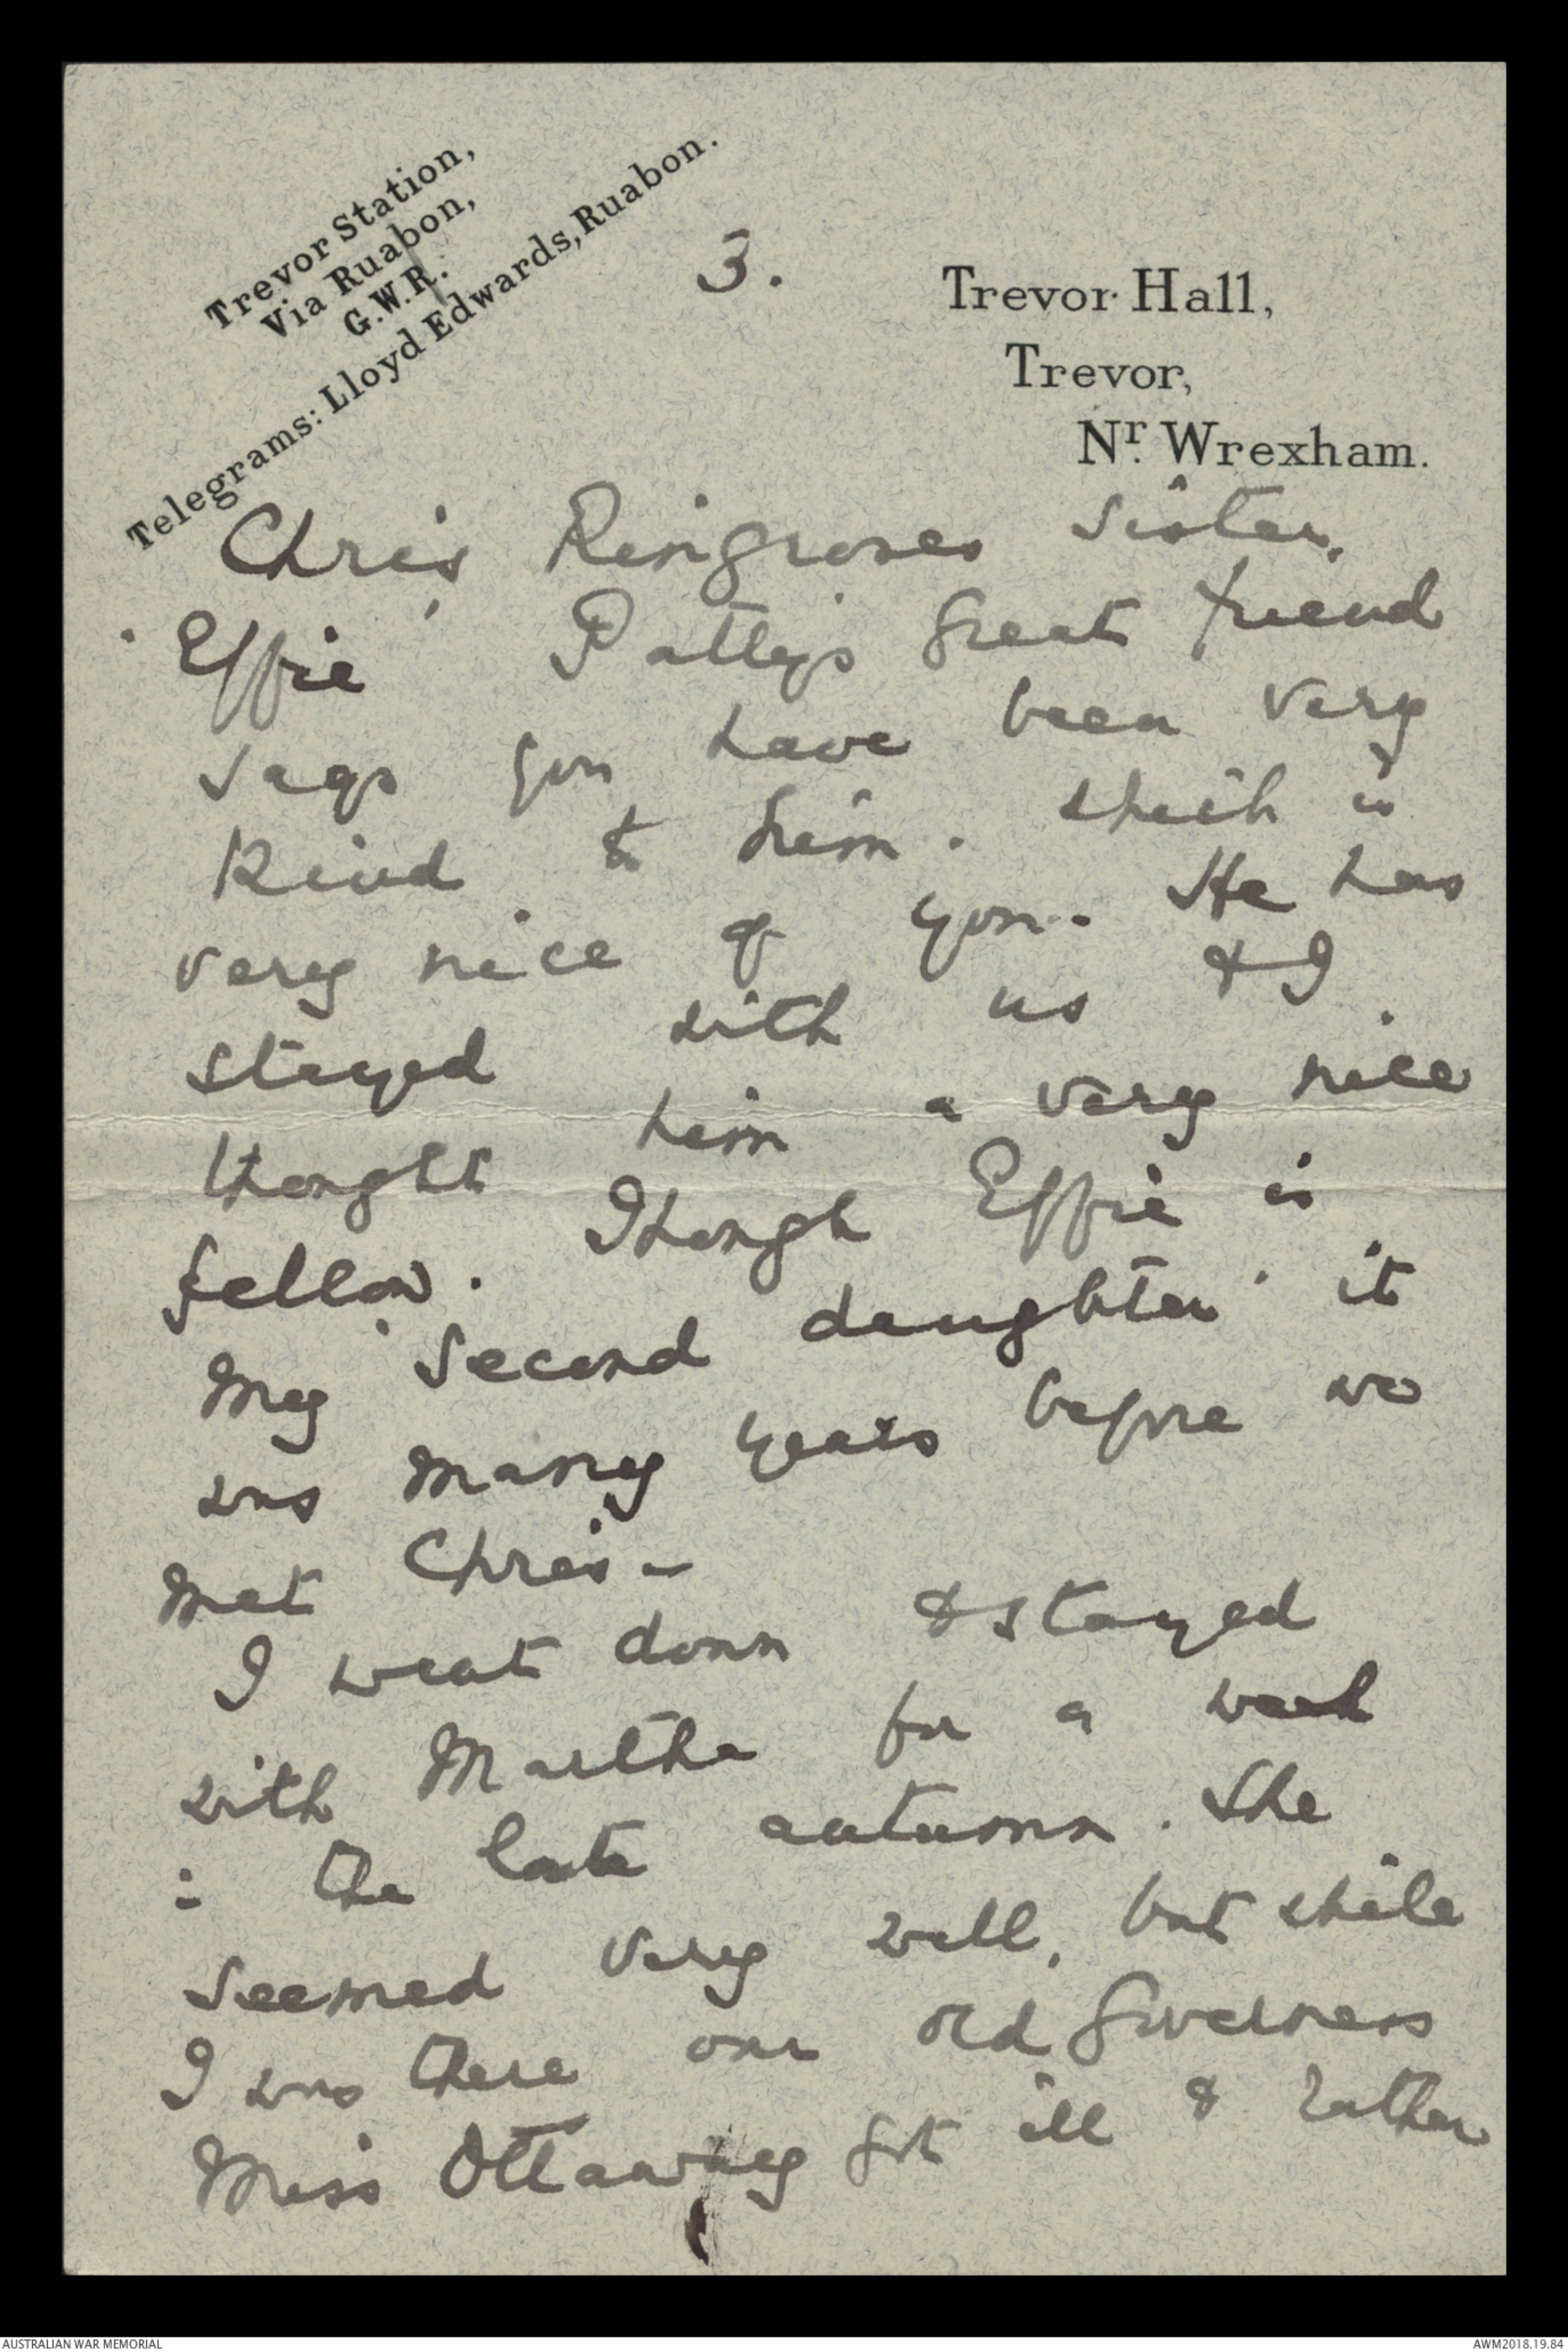 Trevor Station,
Via Ruabon,
G.W.R.
Telegrams: Lloyd Edwards, Ruabon.
3.
Trevor Hall,
Trevor,
Nr. Wrexham.
Chris Ringroses sister,
'Effie' Pattys great friend
says you have been very
kind to him. which is
very nice of you. He has
stayed with us & I
thought him a very nice
fellow. Though Effie is
my 'second daughter' it
was many years before we
met Chris -
I went down & stayed
with Martha for a week
in the late autumn. She
seemed very well, but while
I was there our old governess
Miss Ottaway got ill & rather
AUSTRALIAN WAR MEMORIAL
AWM2018.19.84